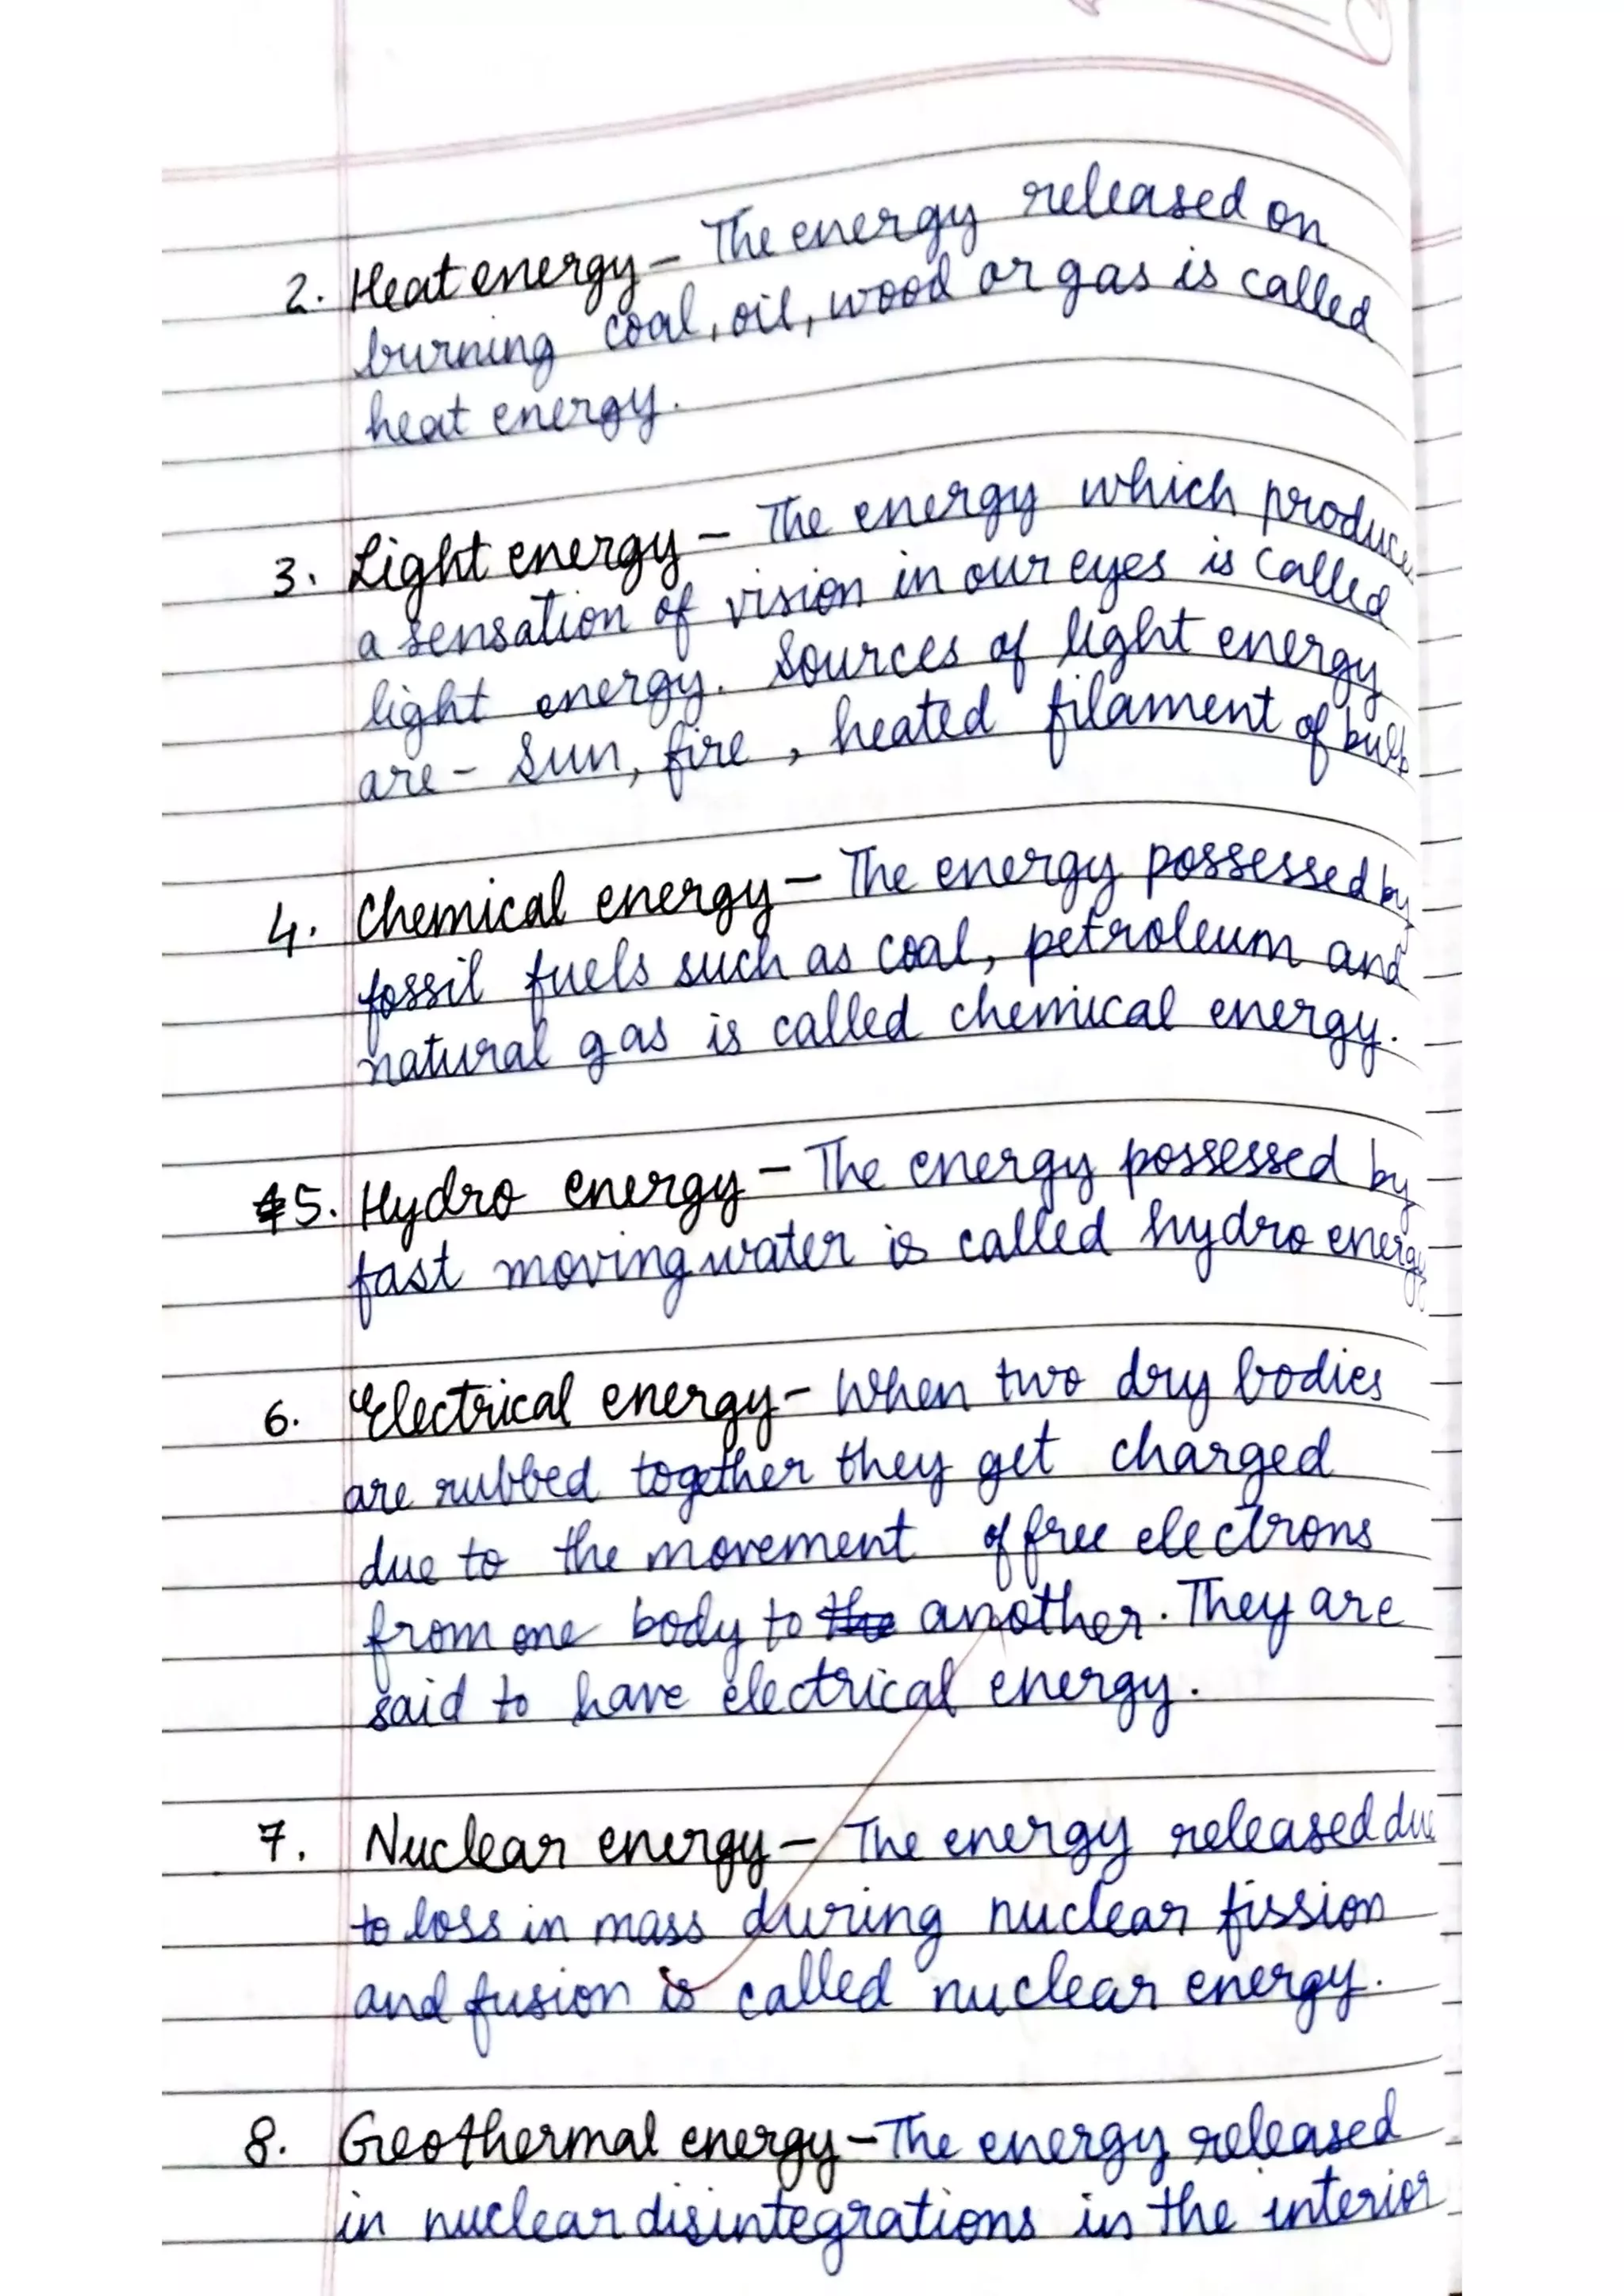 2. Heat energy – The energy released on
burning coal, oil, wood or gas is called
heat energy.
3. Light energy – The energy which produce
a sensation of vision in our eyes is called
light energy. Sources of light energy
are – Sun, fire, heated filament of bulb
4. Chemical energy – The energy possessed by
fossil fuels such as coal, petroleum and
natural gas is called chemical energy.
5. Hydro energy – The energy possessed by
fast moving water is called hydro energy
6. Electrical energy – When two dry bodies
are rubbed together they get charged
due to the movement of free electrons
from one body to the another. They are
said to have electrical energy.
7. Nuclear energy – The energy released due
to loss in mass during nuclear fission
and fusion is called nuclear energy.
8. Geothermal energy – The energy released
in nuclear disintegrations in the interior